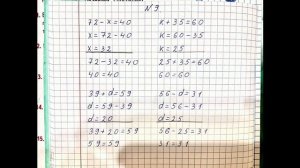 № 9
72 - x = 40
x = 72 - 40
x = 32
72 - 32 = 40
40 = 40
x + 35 = 60
x = 60 - 35
x = 25
25 + 35 = 60
60 = 60
39 + d = 59
d = 59 - 39
d = 20
39 + 20 = 59
59 = 59
56 - d = 31
d = 56 - 31
d = 25
56 - 25 = 31
31 = 31